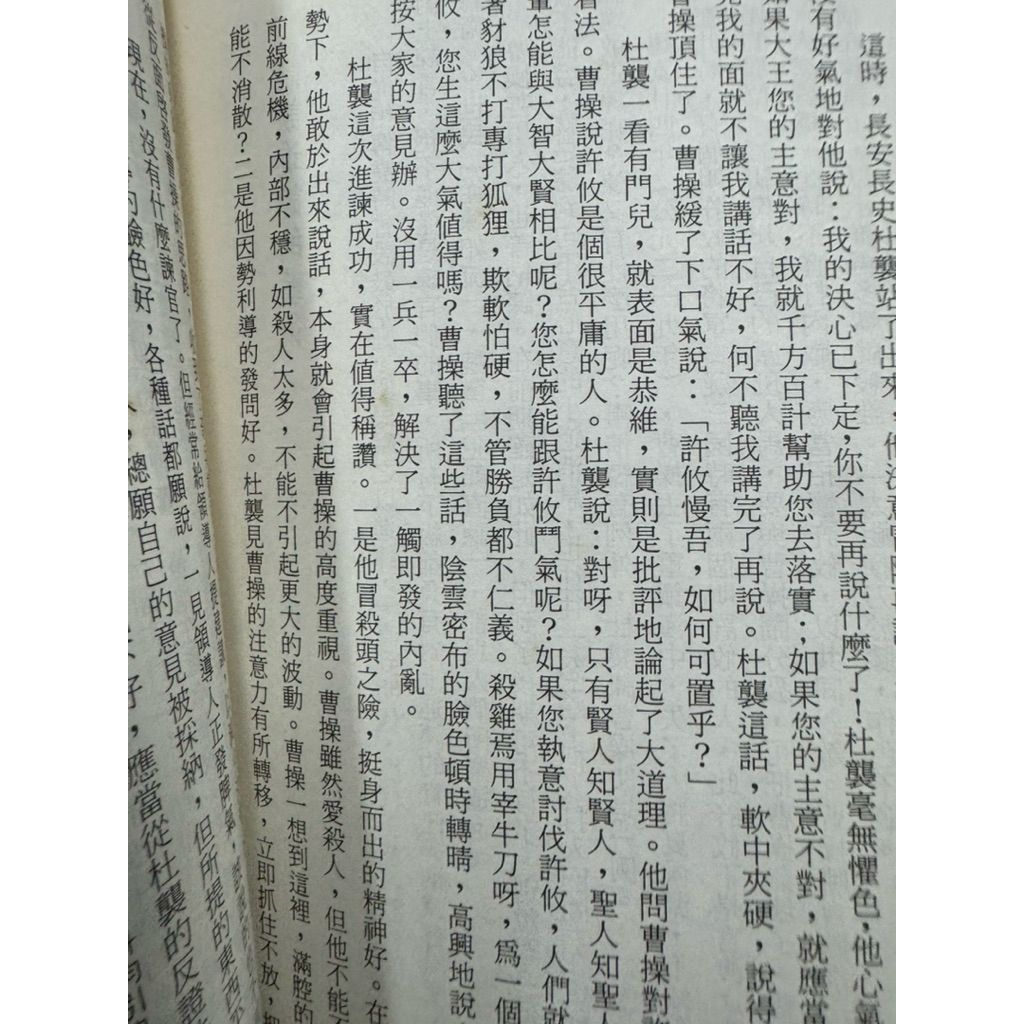 這時，長安長史杜襲站了出來，他沒意
沒有好氣地對他說：我的決心已下定，你不要再說什麼了！杜襲毫無懼色，他心氣
如果大王您的主意對，我就千方百計幫助您去落實；如果您的主意不對，就應當
我的面就不讓我講話不好，何不聽我講完了再說。杜襲這話，軟中夾硬，說得
曹操頂住了。曹操緩了下口氣說：「許攸慢吾，如何可置乎？」
杜襲一看有門兒，就表面是恭維，實則是批評地論起了大道理。他問曹操對許
看法。曹操說許攸是個很平庸的人。杜襲說：對呀，只有賢人知賢人，聖人知聖人
怎能與大智大賢相比呢？您怎麼能跟許攸鬥氣呢？如果您執意討伐許攸，人們就
著豺狼不打專打狐狸，欺軟怕硬，不管勝負都不仁義。殺雞焉用宰牛刀呀，爲一個
攸，您生這麼大氣值得嗎？曹操聽了這些話，陰雲密布的臉色頓時轉晴，高興地說
按大家的意見辦。沒用一兵一卒，解決了一觸即發的內亂。
杜襲這次進諫成功，實在值得稱讚。一是他冒殺頭之險，挺身而出的精神好。在
勢下，他敢於出來說話，本身就會引起曹操的高度重視。曹操雖然愛殺人，但他不能不
前線危機，內部不穩，如殺人太多，不能不引起更大的波動。曹操一想到這裡，滿腔的
能不消散？二是他因勢利導的發問好。杜襲見曹操的注意力有所轉移，立即抓住不放，把
現在，沒有什麼諫官了。但經常給領導人提建議
臉色好，各種話都願說，一見領導人正發脾氣，
總願自己的意見被採納，但所提的東西
好，應當從杜襲的反證